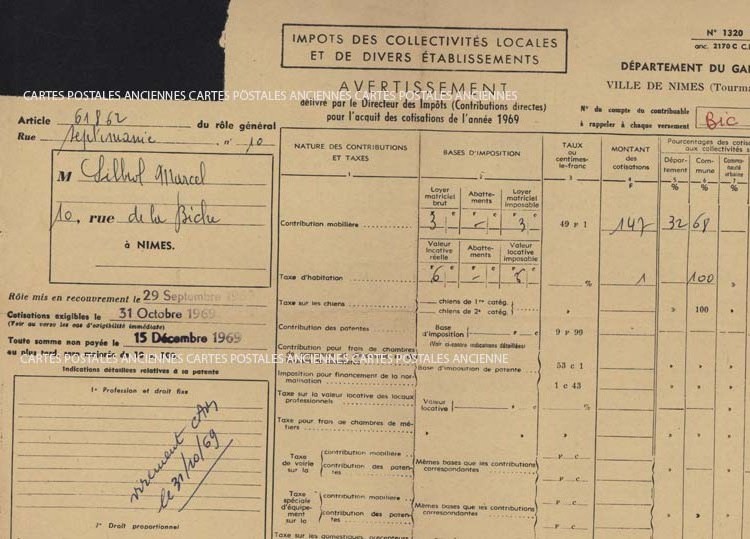 IMPOTS DES COLLECTIVITÉS LOCALES
ET DE DIVERS ÉTABLISSEMENTS
N° 1320
anc. 2170 C
DÉPARTEMENT DU
VILLE DE NIMES
CARTES POSTALES ANCIENNES CARTES POSTALES ANCIENNES CARTES POSTALES ANCIENNES
AVERTISSEMENT
délivré par le Directeur des Impôts (Contributions directes)
pour l'acquit des cotisations de l'année 1969
N° du compte du contribuable
à rappeler à chaque versement
Bic
Article 61862 du rôle général
Rue Septimanie n° 10
M Marcel
10, rue de la Biche
à NIMES.
Rôle mis en recouvrement le 29 Septembre
Cotisations exigibles le 31 Octobre 1969
(Voir au verso les cas d'exigibilité immédiate)
Toute somme non payée le 15 Décembre 1969
CARTES POSTALES ANCIENNES CARTES POSTALES ANCIENNES CARTES POSTALES ANCIENNE
Indications détaillées relatives à la patente
1° Profession et droit fixe
virement
le 31/10/69
2° Droit proportionnel
NATURE DES CONTRIBUTIONS
ET TAXES
BASES D'IMPOSITION
TAUX
ou
centimes-
le-franc
MONTANT
des
cotisations
Pourcentages des
aux collectivités
Dépar-
tement
Com-
mune
Commu-
nauté
urbaine
1 2 3 4 5 6 7
F % % %
Loyer
matriciel
brut
Abatte-
ments
Loyer
matriciel
imposable
F C F C F C
Contribution mobilière 3 - 3 49 F 1 147 32 68 »
Valeur
locative
réelle
Abatte-
ments
Valeur
locative
imposable
F C F C F C
Taxe d'habitation 6 - % 1 100 »
Taxe sur les chiens
chiens de 1re catég.
chiens de 2e catég.
» 100 »
Contribution des patentes
Base
d'imposition
» F » C 9 F 99
(Voir ci-contre indications détaillées)
Contribution pour frais de chambres
Base d'imposition de patente 53 C 1 » » »
Imposition pour financement de la nor-
malisation 1 C 43 » » »
Taxe sur la valeur locative des locaux
professionnels
Valeur
locative
» F » C % » » »
Taxe pour frais de chambres de mé-
tiers » » » » »
Taxe
de voirie
sur la
contribution mobilière
contribution des paten-
tes
Mêmes bases que les contributions
correspondantes
F C
F C
» » »
Taxe
spéciale
d'équipe-
ment
sur la
contribution mobilière
contribution des paten-
tes
Mêmes bases que les contributions
correspondantes
F C
F C
» » »